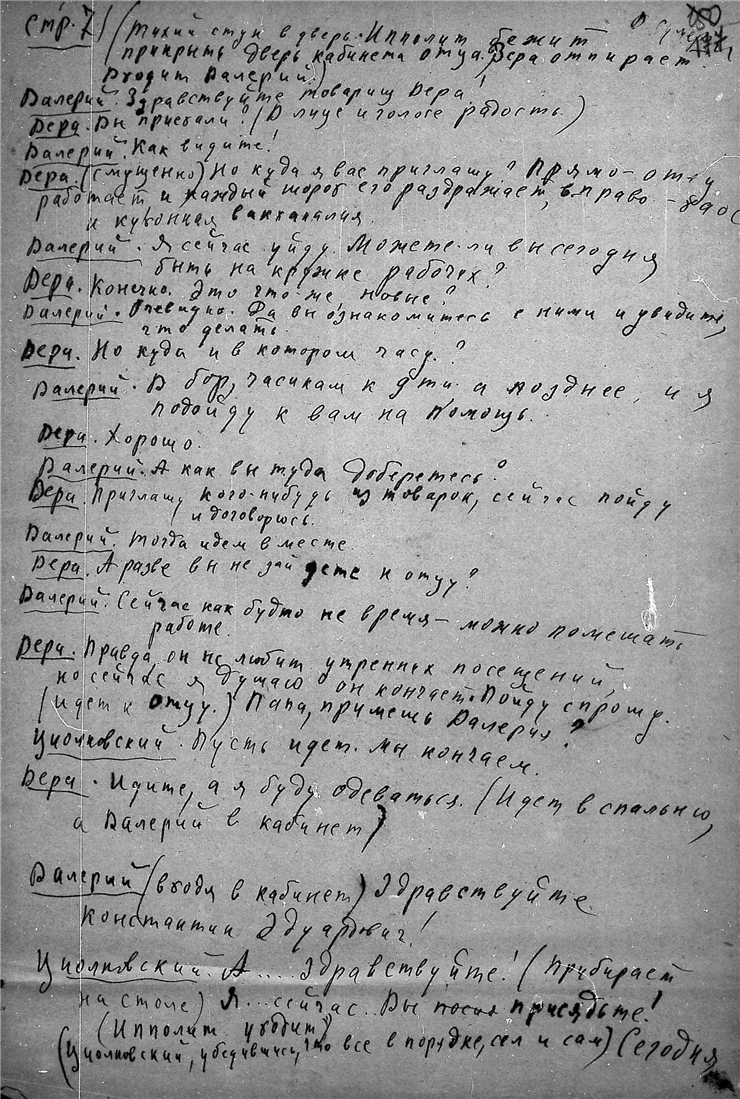 Стр. 7) (Тихий стук в дверь. Ипполит бежит
прикрыть дверь кабинета отца. Вера отпирает
Входит Валерий.)
Валерий. Здравствуйте товарищ Вера!
Вера. Вы приехали? (В лице и голосе радость.)
Валерий. Как видите!
Вера (смущенно) Но куда я вас приглашу? Прямо – отец
работает и каждый шорох его раздражает, вправо – хаос
и кухонная вакханалия.
Валерий. Я сейчас уйду. Можете-ли вы сегодня
быть на кружке рабочих?
Вера. Конечно. Это что-же новые?
Валерий. Очевидно. Да вы ознакомитесь с ними и увидите,
что делать.
Вера. Но куда и в котором часу?
Валерий. В бор, часикам к 9ти а позднее, и я
подойду к вам на помощь.
Вера. Хорошо.
Валерий. А как вы туда доберетесь?
Вера. Приглашу кого-нибудь из товарок, сейчас пойду
и договорюсь.
Валерий. Тогда идем вместе.
Вера. А разве вы не зайдете к отцу?
Валерий. Сейчас как будто не время – можно помешать
работе.
Вера. Правда, он не любит утренних посещений,
но сейчас я думаю он кончает. Пойду спрошу.
(Идет к отцу.) Папа, примешь Валерия?
Циолковский. Пусть идет. Мы кончаем.
Вера. Идите, а я буду одеваться. (Идет в спальню,
а Валерий в кабинет)
Валерий (входя в кабинет) Здравствуйте
Константин Эдуардович!
Циолковский. А.... Здравствуйте! (Прибирает
на столе) Я... сейчас. Вы присядьте!
(Ипполит уходит)
(Циолковский, убедившись, что все в порядке, сел и сам) Сегодня